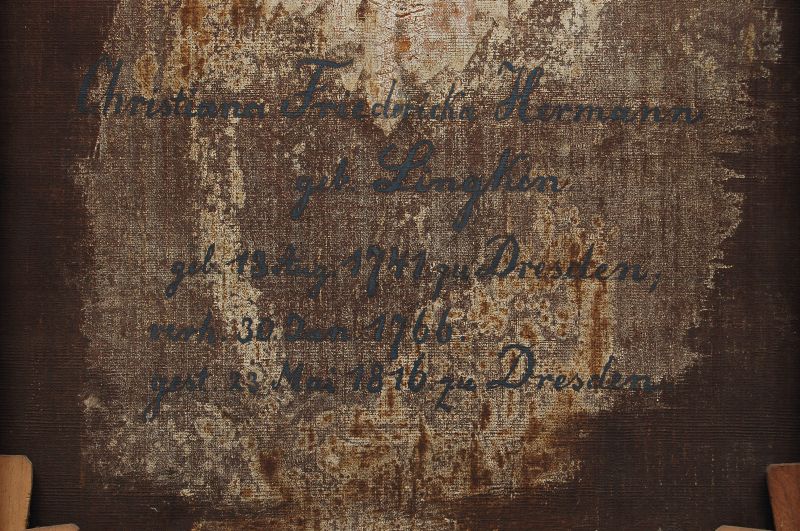 Christiana Friedericka Hermann
geb. Lingken
geb. 13 Aug. 1741 zu Dresden,
verh. 30. Jan. 1766.
gest. 23 Mai 1816 zu Dresden.